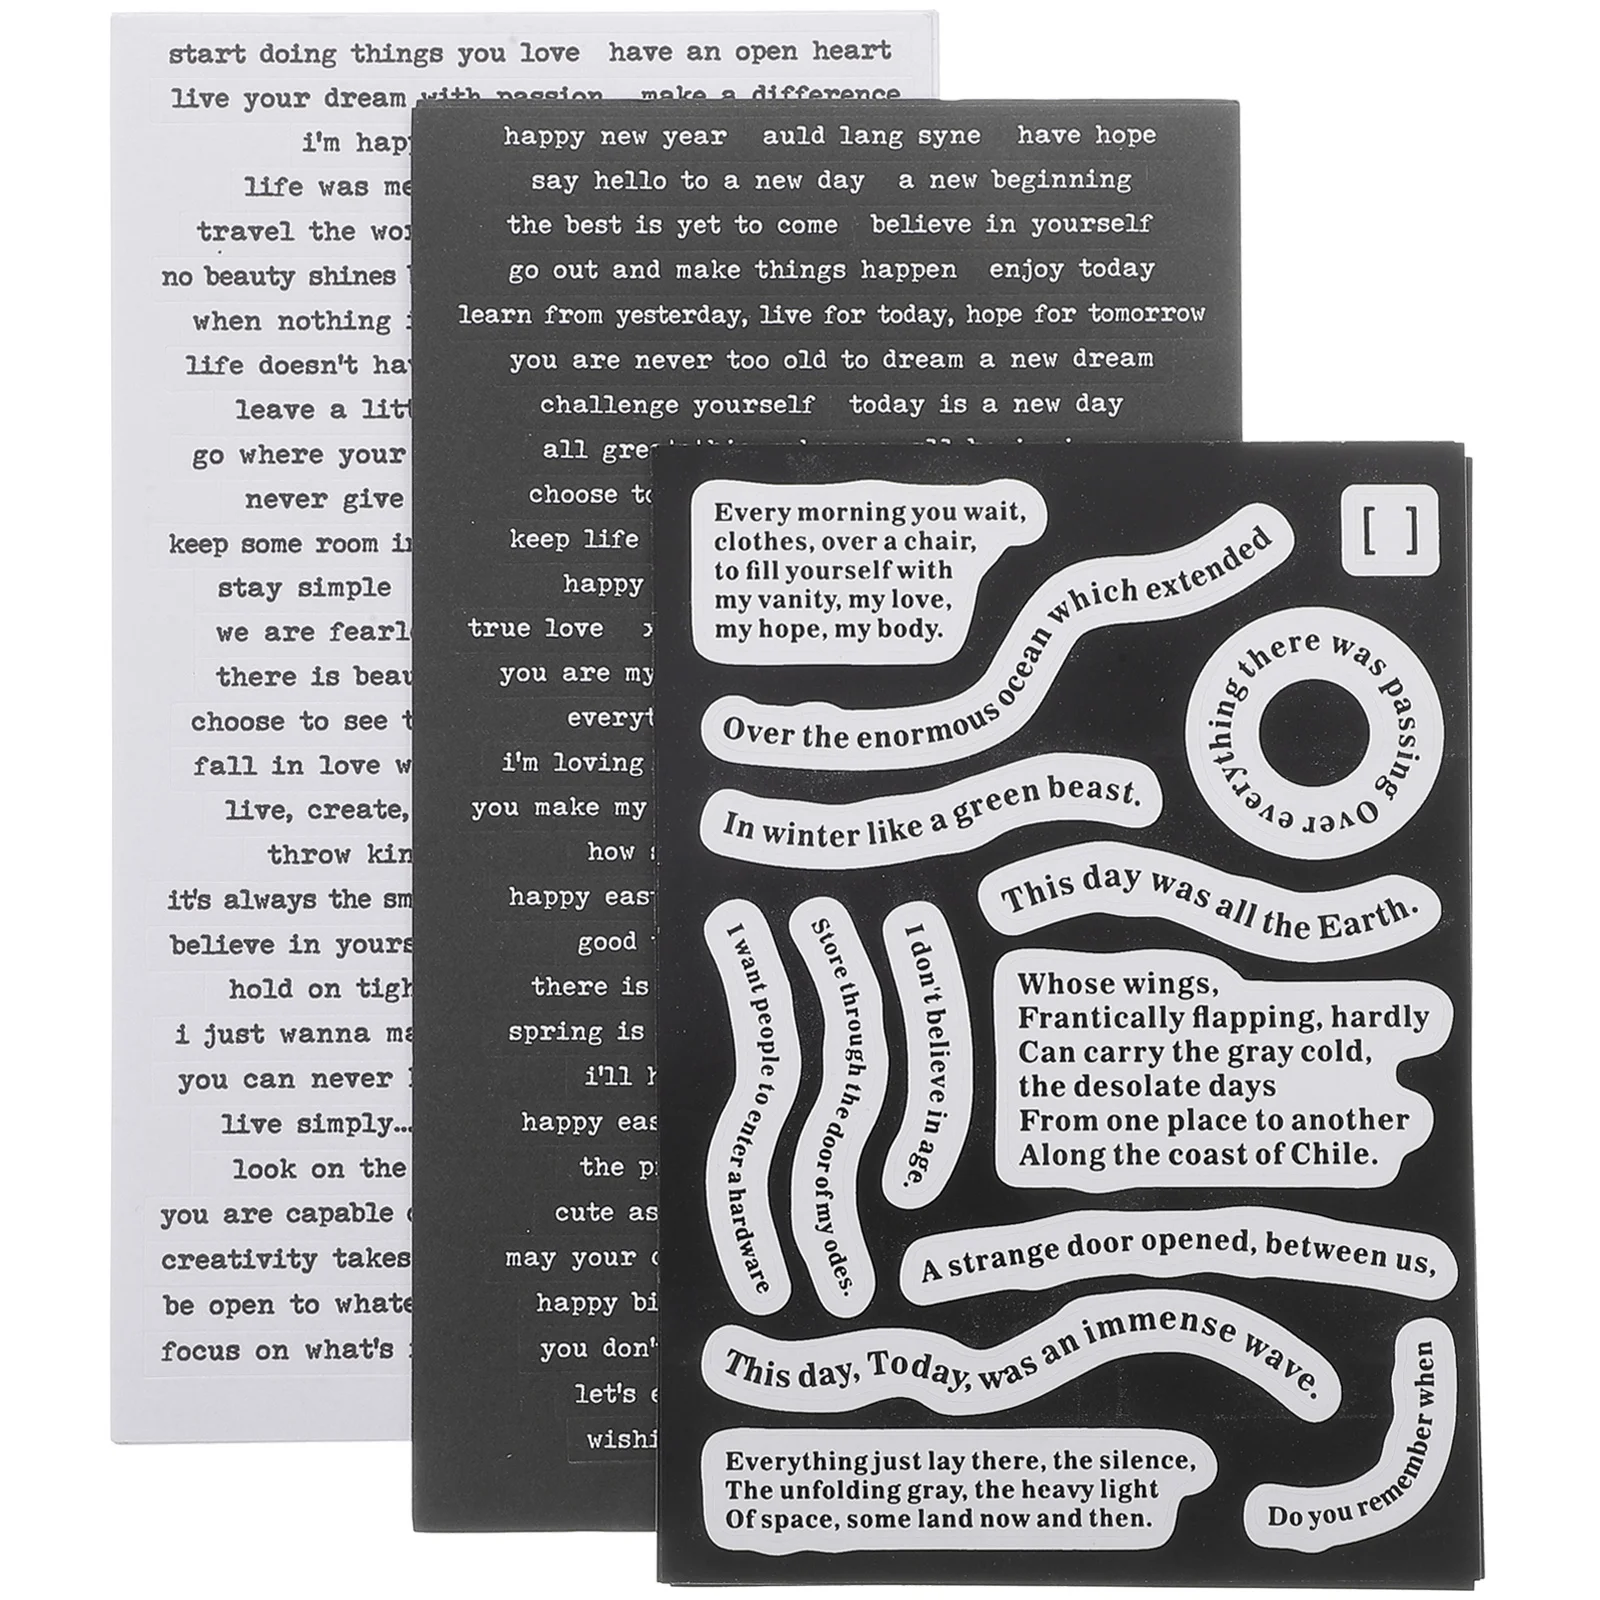 start doing things you love have an open heart
live your dream with passion make a difference
i'm
life was
travel the
no beauty shines
when nothing
life doesn't
leave a
go where your
never give
keep some room
stay simple
we are
there is
choose to see
fall in love
live, create,
throw
it's always the
believe in
hold on
i just wanna
you can never
live simply...
look on the
you are capable
creativity takes
be open to
focus on what's
happy new year auld lang syne have hope
say hello to a new day a new beginning
the best is yet to come believe in yourself
go out and make things happen enjoy today
learn from yesterday, live for today, hope for tomorrow
you are never too old to dream a new dream
challenge yourself today is a new day
all
choose
keep life
happy
true love
you are my
i'm loving
you make my
how
happy
good
there is
spring is
i'll
happy
the
cute as
may your
happy
you
let's
Every morning you wait,
clothes, over a chair,
to fill yourself with
my vanity, my love,
my hope, my body.
[ ]
Over the enormous ocean which extended
Over everything there was passing
In winter like a green beast.
This day was all the Earth.
I want people to enter a hardware
Store through the door of my odes.
I don't believe in age.
Whose wings,
Frantically flapping, hardly
Can carry the gray cold,
the desolate days
From one place to another
Along the coast of Chile.
A strange door opened, between us,
This day, Today, was an immense wave.
Do you remember when
Everything just lay there, the silence,
The unfolding gray, the heavy light
Of space, some land now and then.